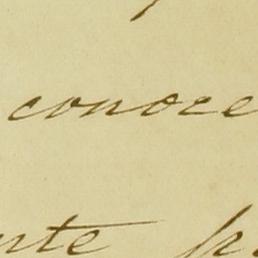 conoce
nte